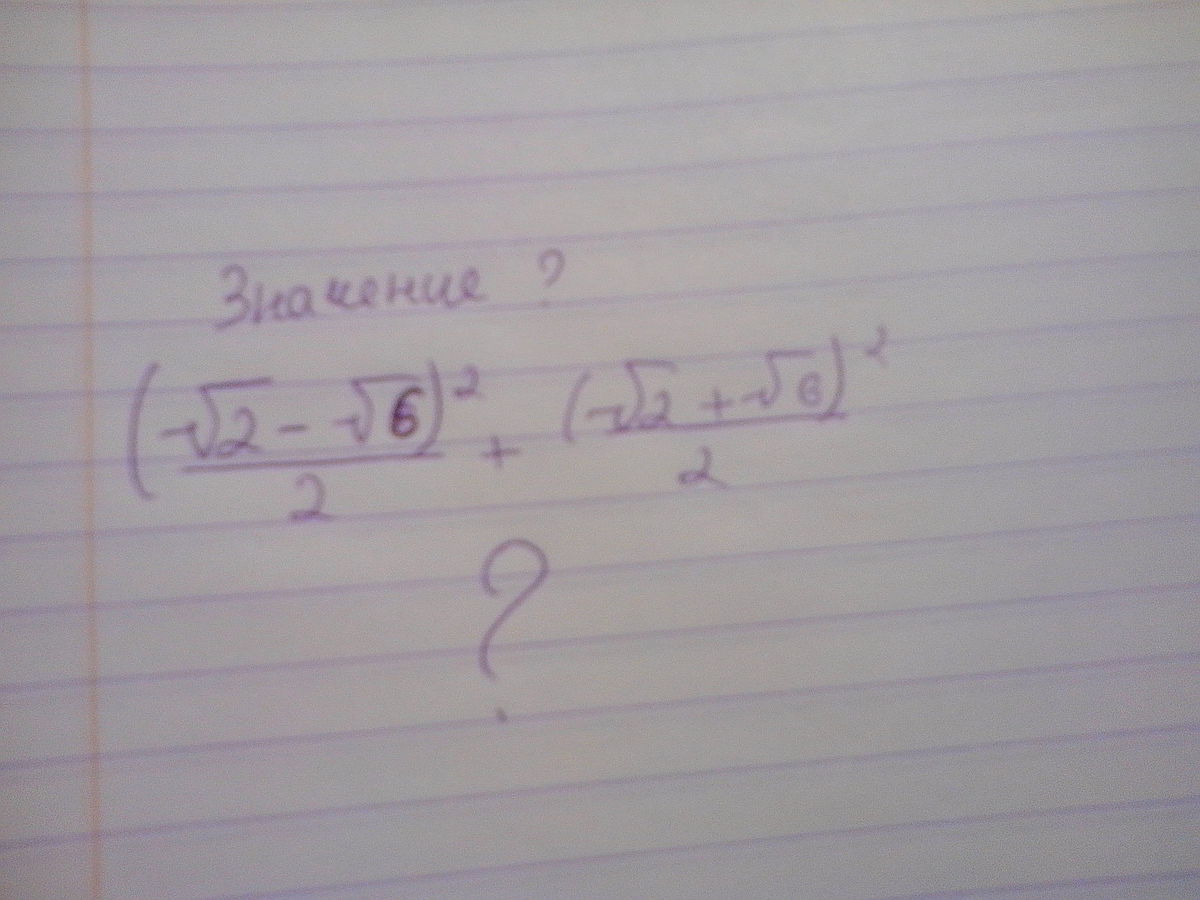 Значение ?
(√2 - √6)² / 2 + (√2 + √6)² / 2
?